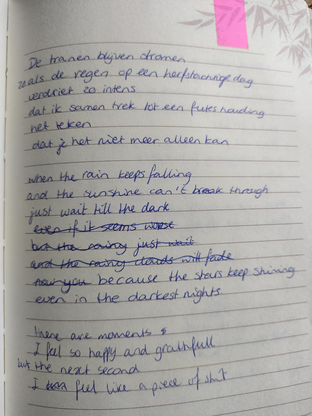 De tranen blijven stromen
zoals de regen op een herfststormige dag
verdriet zo intens
dat ik samen trek tot een foetes houding
het teken
dat je het niet meer alleen kan
when the rain keeps falling
and the sunshine can't break through
just wait till the dark
even if it seems worse
but the rainy just wait
and the rainy clouds will fade
now you because the stars keep shining
even in the darkest nights.
there are moments
I feel so happy and grathfull
but the next second
I feel like a piece of shit